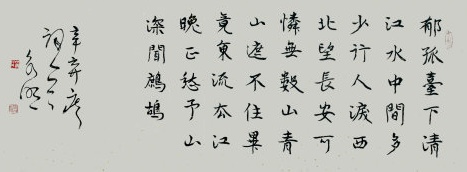 郁孤臺下清
江水中間多
少行人淚西
北望長安可
憐無數山青
山遮不住畢
竟東流去江
晚正愁予山
深聞鷓鴣
辛弃疾
词